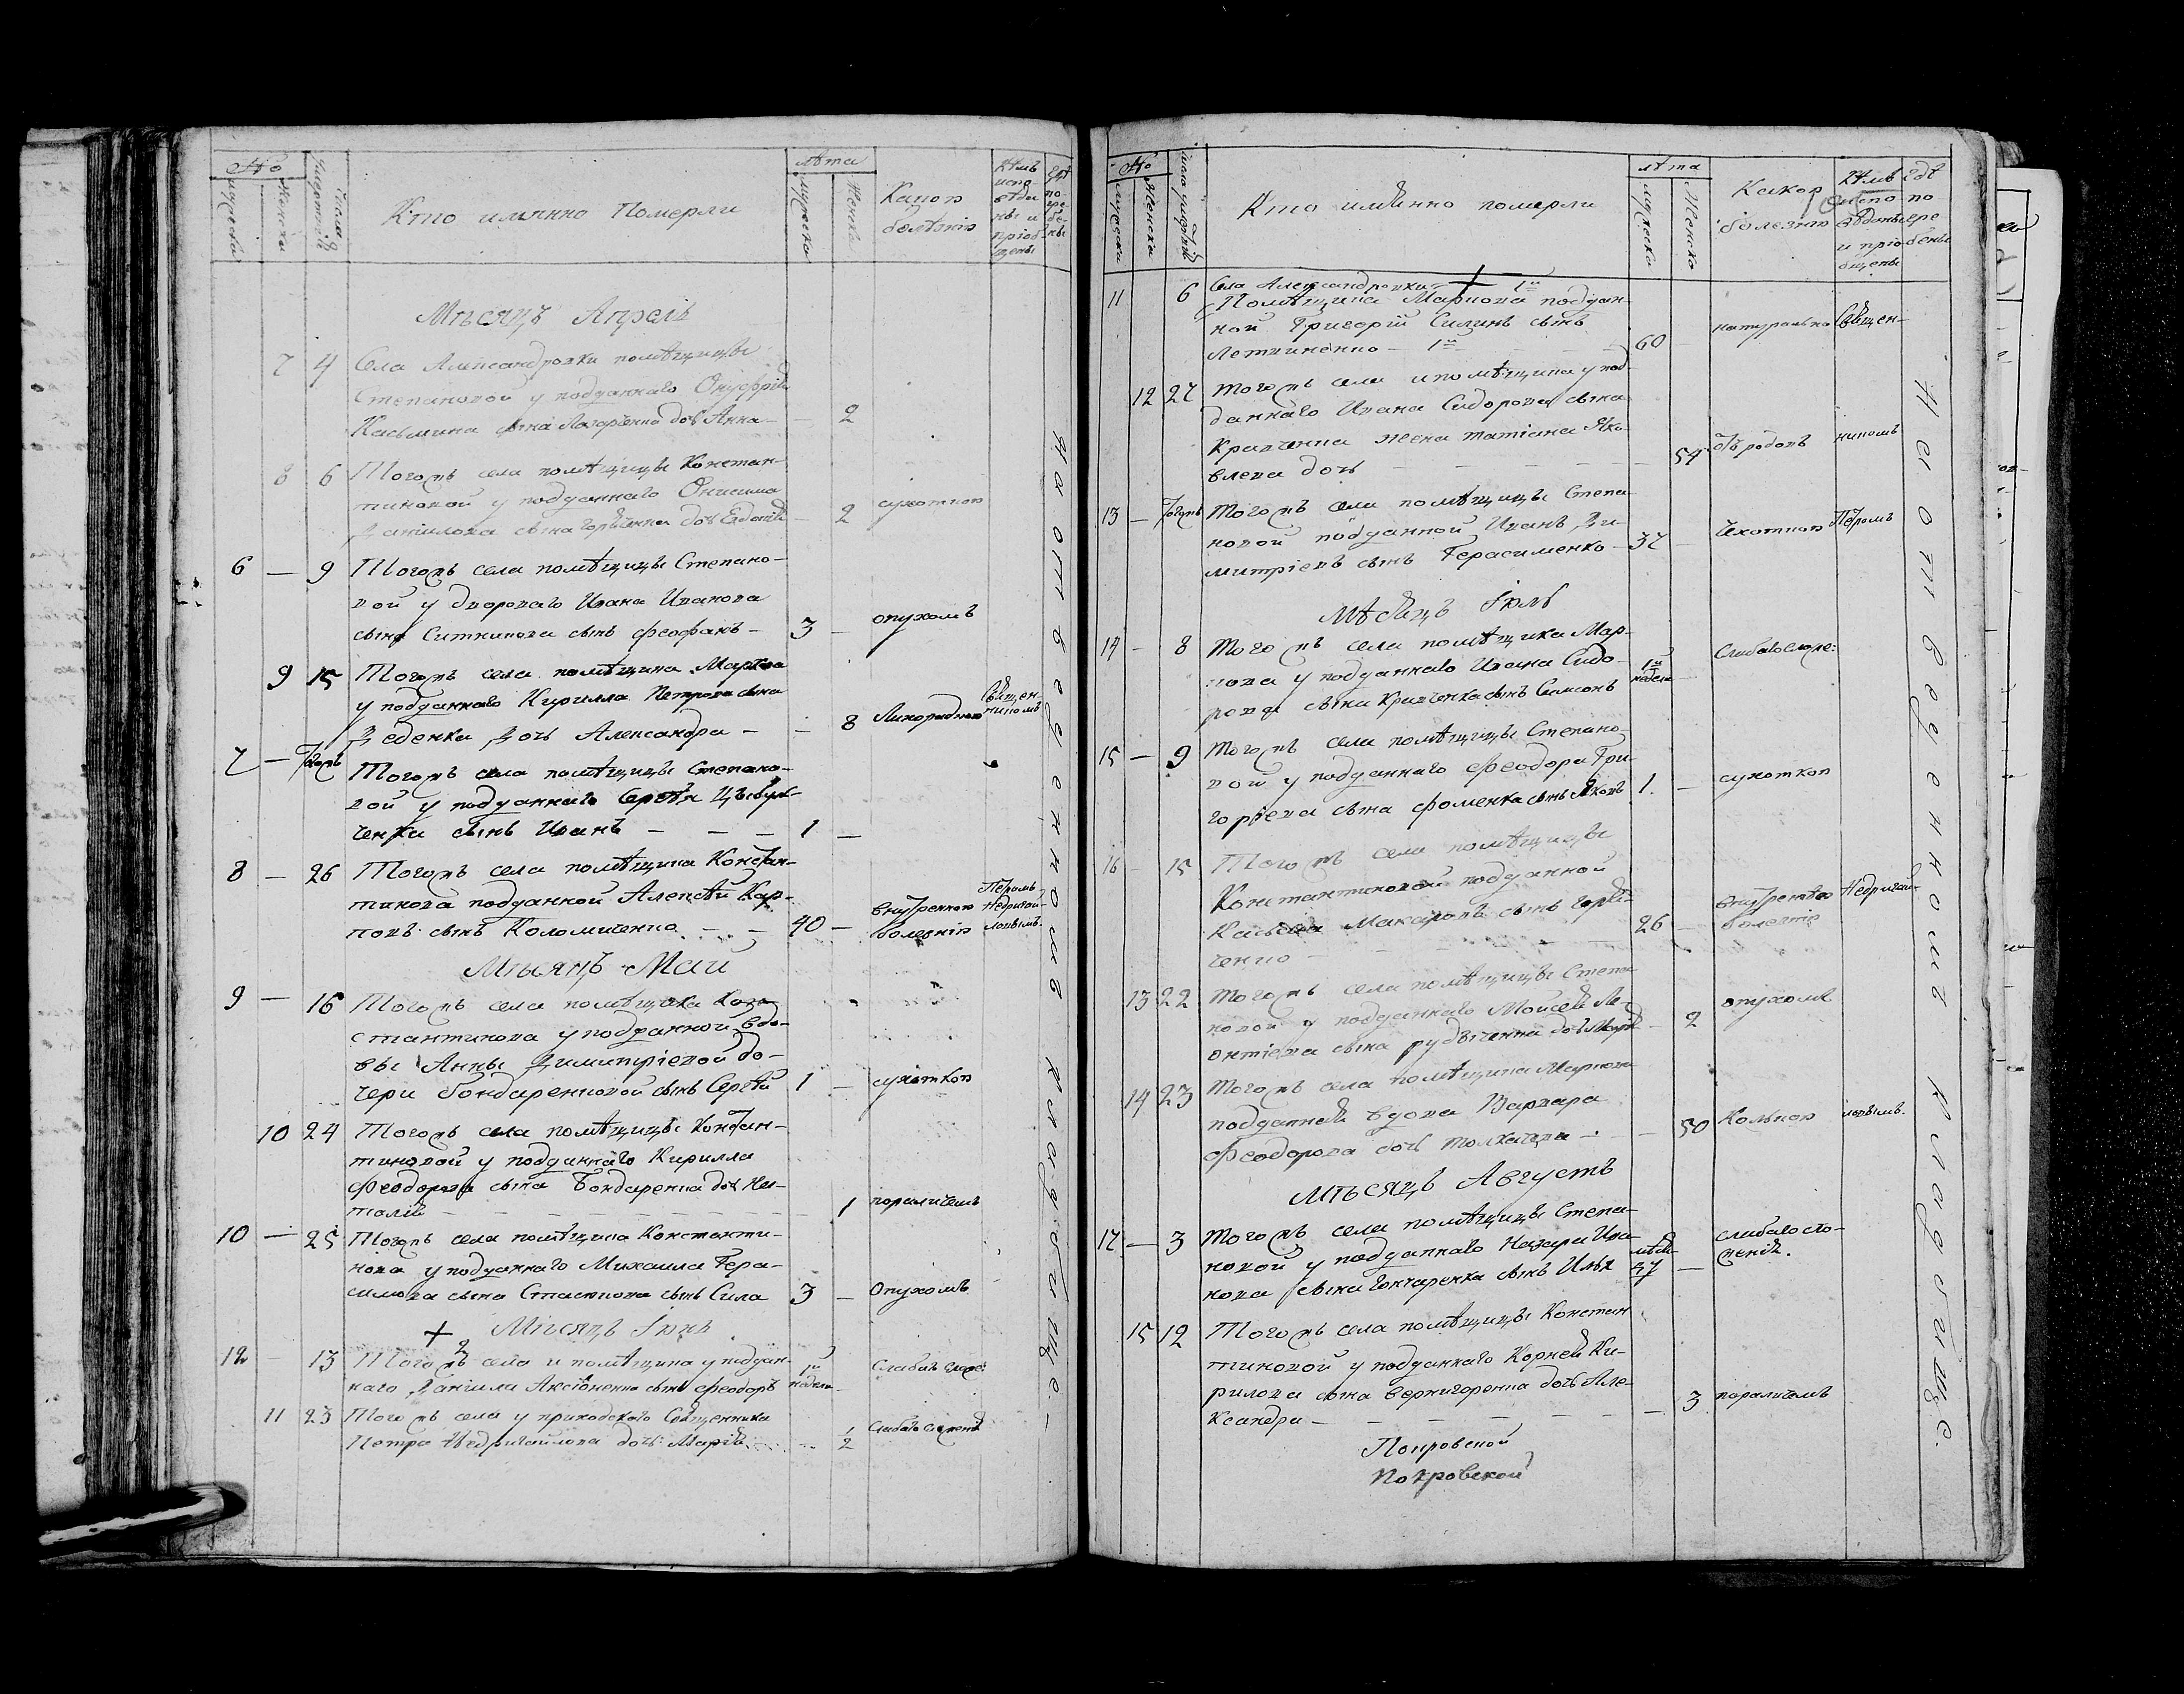 No
мужеска
женска
числа умертвій
Кто имянно Померли
лѣта
мужеска
женска
Какою болѣзнію
Кѣмъ исповѣданы и пріобщены
Гдѣ погребены
Мѣсяцъ Апрель
7 4 Села Александровки помѣщицы
Степановой у подданнаго Онуфрія
Касьмина сына дочь Анна — 2
8 6 Тогожъ села помѣщицы Констан-
тиновой у подданнаго Онисима
Данилова сына дочь Евдокія — 2 сухотою
6 — 9 Тогожъ села помѣщицы Степано-
вой у двороваго Ивана Иванова
сына Ситникова сынъ Феофанъ — 3 — опухомъ
9 15 Тогожъ села помѣщика Маркова
у подданнаго Кирилла Петрова сына
Дедѣнка дочь Александра — — 8 Лихорадкою Священникомъ
7 — Тогожъ Тогожъ села помѣщицы Степано-
вой у подданнаго Сергѣя
ченка сынъ Иванъ — — — 1 —
8 — 26 Тогожъ села помѣщика Констан-
тинова подданной Алексѣй Кар-
повъ сынъ Коломиченко — — 40 — внутреннею болезнію Петромъ Недригайловымъ
Мѣсяцъ Май
9 — 16 Тогожъ села помѣщика Кон-
стантинова у подданной вдо-
вы Анны Димитріевой до-
чери Бондаренковой сынъ Сергѣй 1 — сухоткою
10 24 Тогожъ села помѣщицы Констан-
тиновой у подданнаго Кирилла
Феодорова сына Бондаренка дочь На-
талія — — — — — — — 1 параличемъ
10 — 25 Тогожъ села помѣщика Константи-
нова у подданнаго Михаила Гера-
симова сына сынъ Сила 3 — Опухомъ
Мѣсяцъ Іюнь
12 — 13 Тогожъ села и помѣщика у поддан-
наго Данила Аксіоненка сынъ Феодоръ неделя
11 23 Тогожъ села у приходскаго Священника
Петра Недригайлова дочь Марія 1/2
на отведенномъ кладбище.—
No
мужеска
женска
число умертвій
Кто имянно померли
лѣта
мужеска
женско
Какою болезнію
Кѣмъ исповѣданы и пріобщены
Гдѣ погребены
11 6 Села Александровки
Помѣщика Маркова поддан-
ной Григорій Силинъ сынъ
60 — натурально Священ-
12 27 Тогожъ села и помѣщика у под-
даннаго Ивана Сидорова сына
Кравченка жена Татіана Яко-
влева дочь — — — — — — 54 никомъ
13 — Тогожъ Тогожъ села помѣщицы Степа-
новой подданной Иванъ Ди-
митріевъ сынъ Герасименко — 37 — Чехоткою Петромъ
Мѣсяцъ Іюль
14 — 8 Тогожъ села помѣщика Мар-
кова у подданнаго Ивана Сидо-
рова сына Кравченка сынъ Самсонъ неделя —
15 — 9 Тогожъ села помѣщицы Степано-
вой у подданнаго Феодора Гри-
горьева сына Фоменка сынъ Яковъ 1. — сухоткою
16 — 15 Тогожъ села помѣщицы
Константиновой подданной
Касьянъ Макаровъ сынъ
ченко — 26 — внутреннею болезнію Недригай-
13 22 Тогожъ села помѣщицы Степа-
новой у подданнаго Моисея Ле-
онтіева сына Рудыченка дочь Марія — 2 опухомъ
14 23 Тогожъ села помѣщика Маркова
подданной вдова Варвара
Феодорова дочь — — 50 ловымъ.
Мѣсяцъ Августъ
17 — 3 Тогожъ села помѣщицы Степа-
новой у подданнаго Назара Ива-
нова сына Гончаренка сынъ Илья — слабаго сло-
женія.
15 12 Тогожъ села помѣщицы Констан
тиновой у подданнаго Корнея Ки-
рилова сына Вернигоренка дочь Але-
ксандра — — — — — — — 3 параличемъ
Покровской
Покровской
На отведенномъ кладбище.